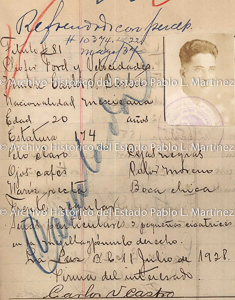 Refrendado con perm.
# 10344
Título 281
Chofer Ford y Velocidades.
Nombre Carlos V. Castro
Nacionalidad Mexicana
Edad 20 años
Estatura 174
Pelo claro Cejas negras
Ojos cafés Color Moreno
Nariz recta Boca chica
Frente
Señas particulares 2 pequeñas cicatrices
en pómulo derecho.
La Paz a 11 Julio de 1928.
Firma del interesado.
Carlos V Castro
Cancelada
© Archivo Histórico del Estado Pablo L. Martínez
© Archivo Histórico del Estado Pablo L. Martínez
© Archivo Histórico del Estado Pablo L. Martínez
© Archivo Histórico del Estado Pablo L. Martínez